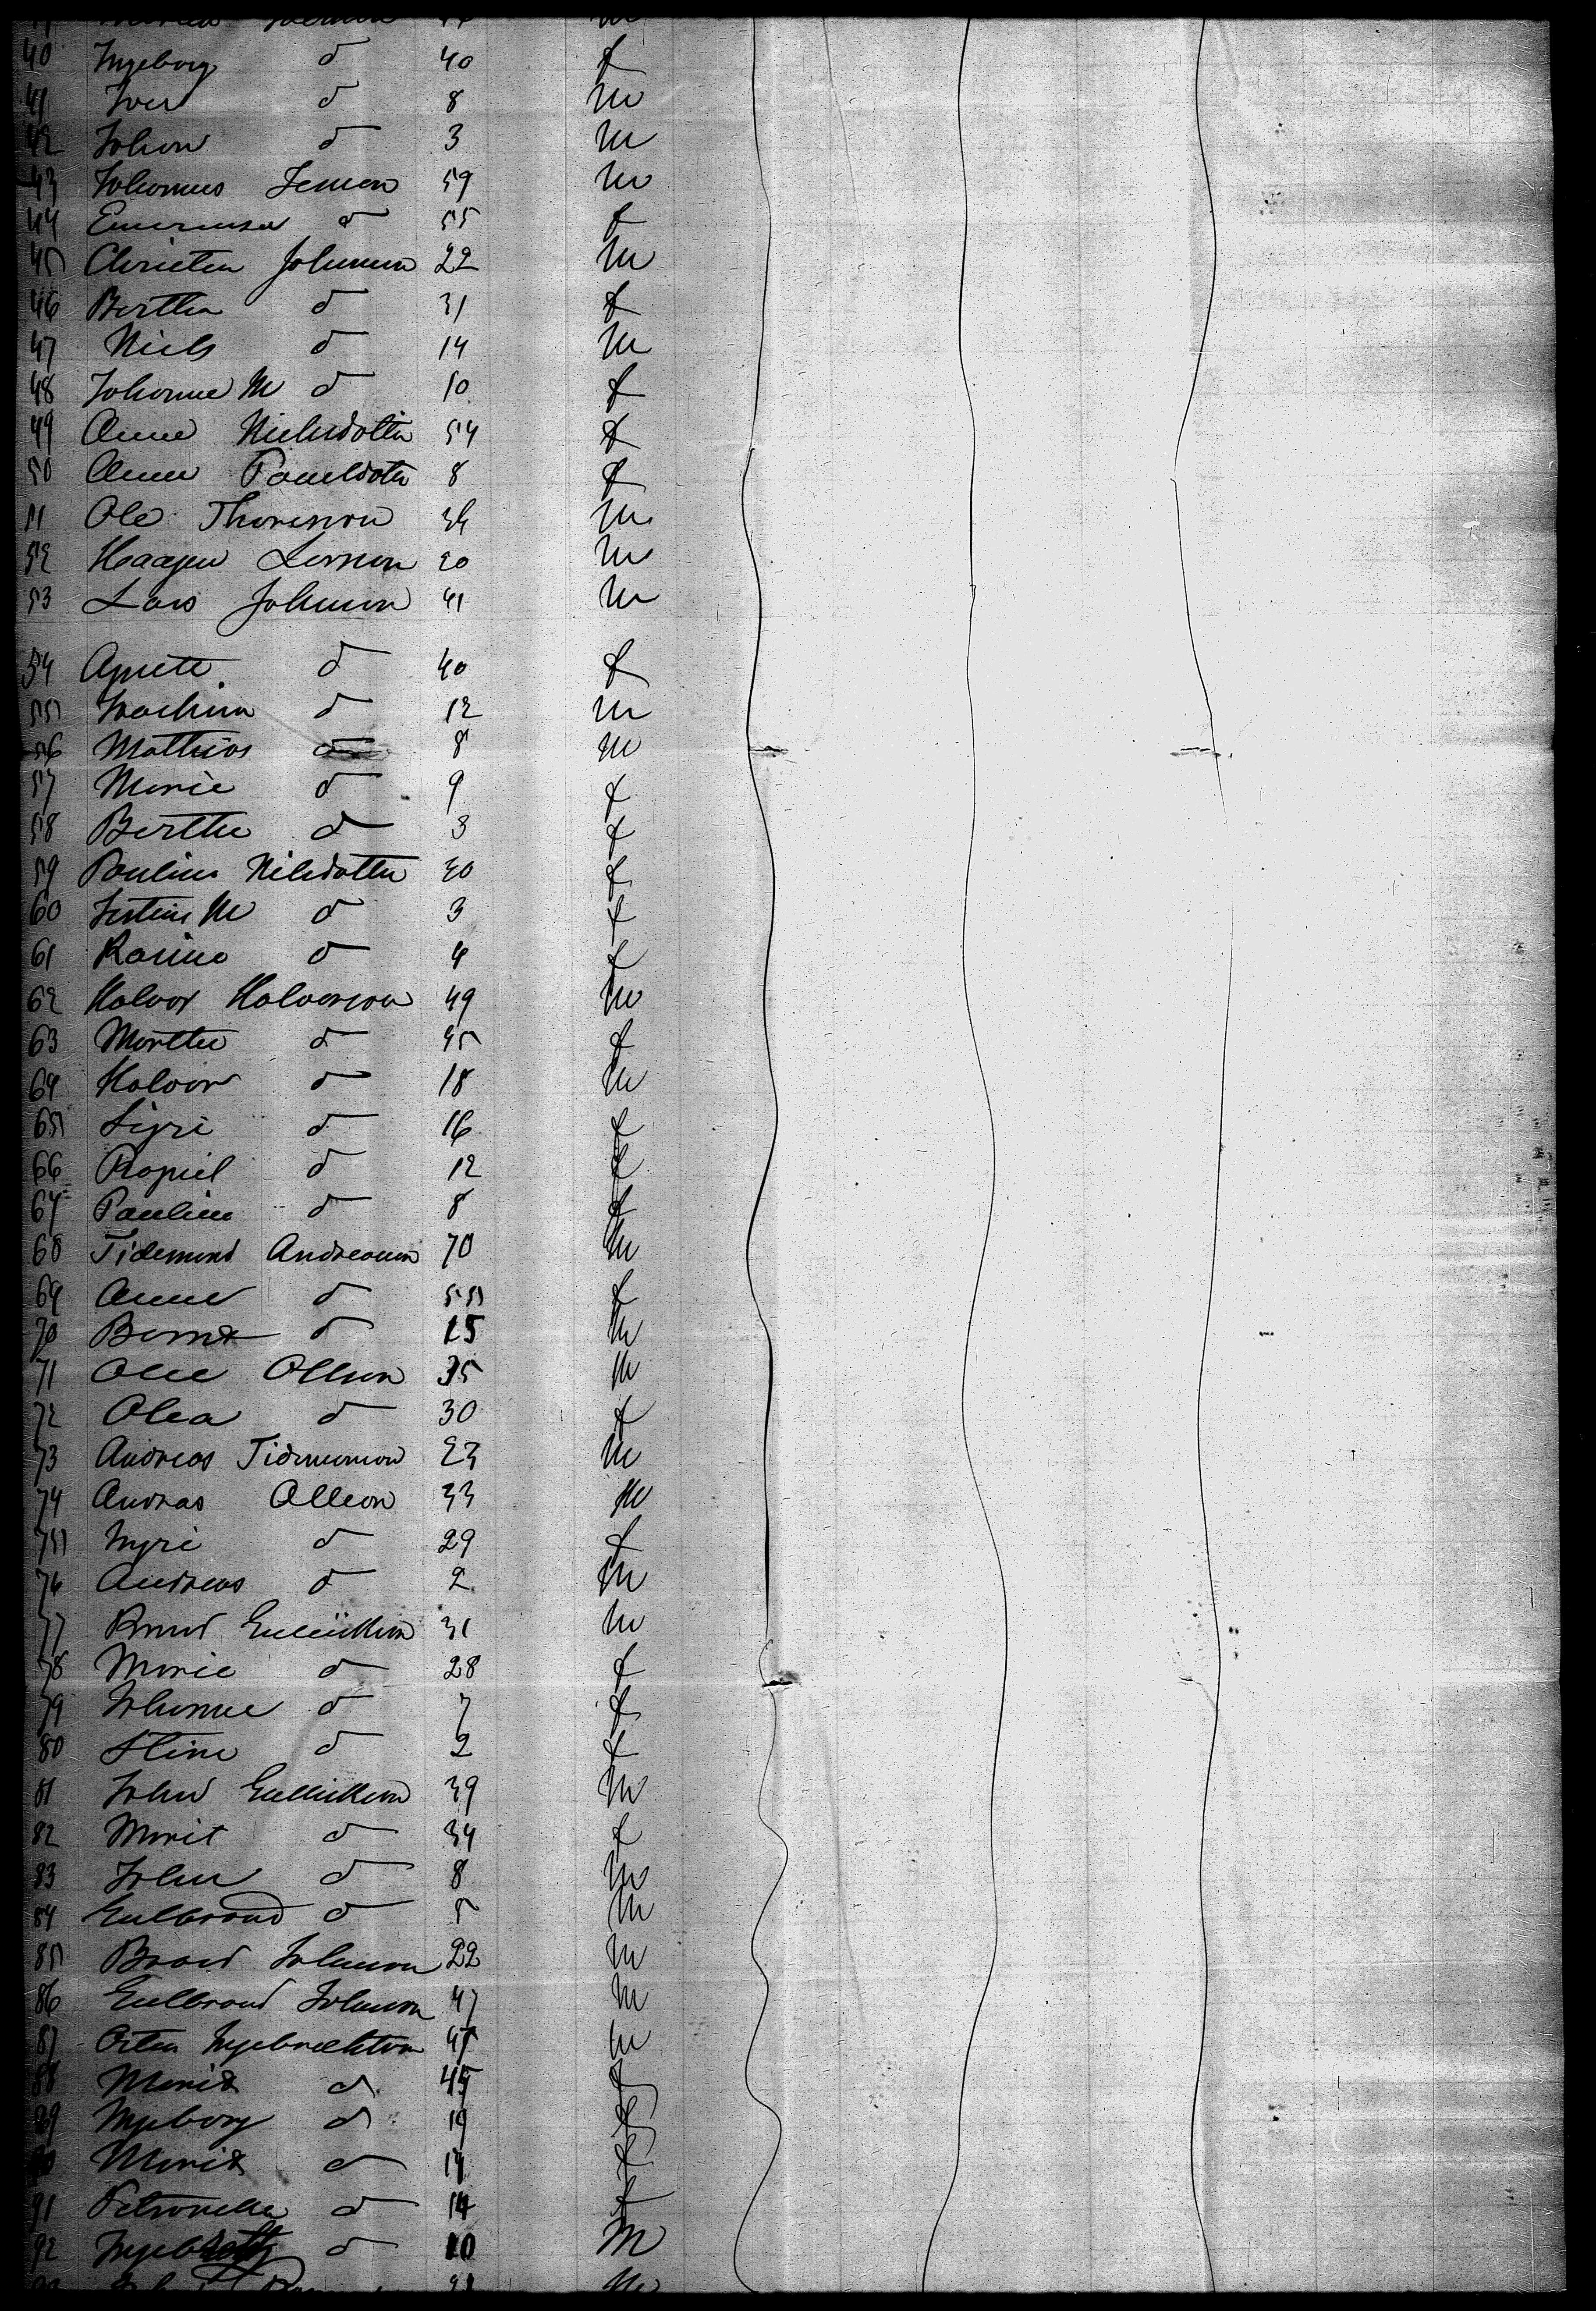 40 Ingeborg d 40 f
41 Iver d 8 m
42 Johan d 3 m
43 Johannes Jensen 59 m
44 d 55 f
45 Christen Johnsen 22 m
46 Berthe d 31 f
47 Niels d 14 m
48 Johanne M d 10 f
49 Anne Nielsdotter 54 f
50 Anne Pouelsdotr 8 f
51 Ole Thoreson 34 m
52 Haagen Larsen 20 m
53 Lars Johnson 41 m
54 Agnete d 40 f
55 Joachim d 12 m
56 Mathias d 8 m
57 Marie d 9 f
58 Berthe d 3 f
59 Pauline Nilsdotter 30 f
60 M d 3 f
61 Rasine d 4 f
62 Halvor Halvorson 49 m
63 Marthe d 45 f
64 Halvor d 18 m
65 Sigri d 16 f
66 Ragnil d 12 f
67 Pauline d 8 f
68 Tidemand Andreasen 70 m
69 Anne d 55 f
70 Bernt d 15 m
71 Ole Olson 35 m
72 Olea d 30 f
73 Andreas Tidemanson 23 m
74 Andras Olleson 33 m
75 d 29 f
76 Andreas d 2 m
77 Gullickson 31 m
78 Marie d 28 f
79 Johanne d 7 f
80 Stine d 2 f
81 John Gullickson 39 m
82 Marit d 34 f
83 John d 8 m
84 Gulbrand d 5 m
85 Johnson 22 m
86 Gulbrand Johnson 47 m
87 Osten Ingebrecktson 47 m
88 Marit d 45 f
89 Ingeborg d 19 f
Marit d 17 f
91 Petronelle d 14 f
92 d 10 m